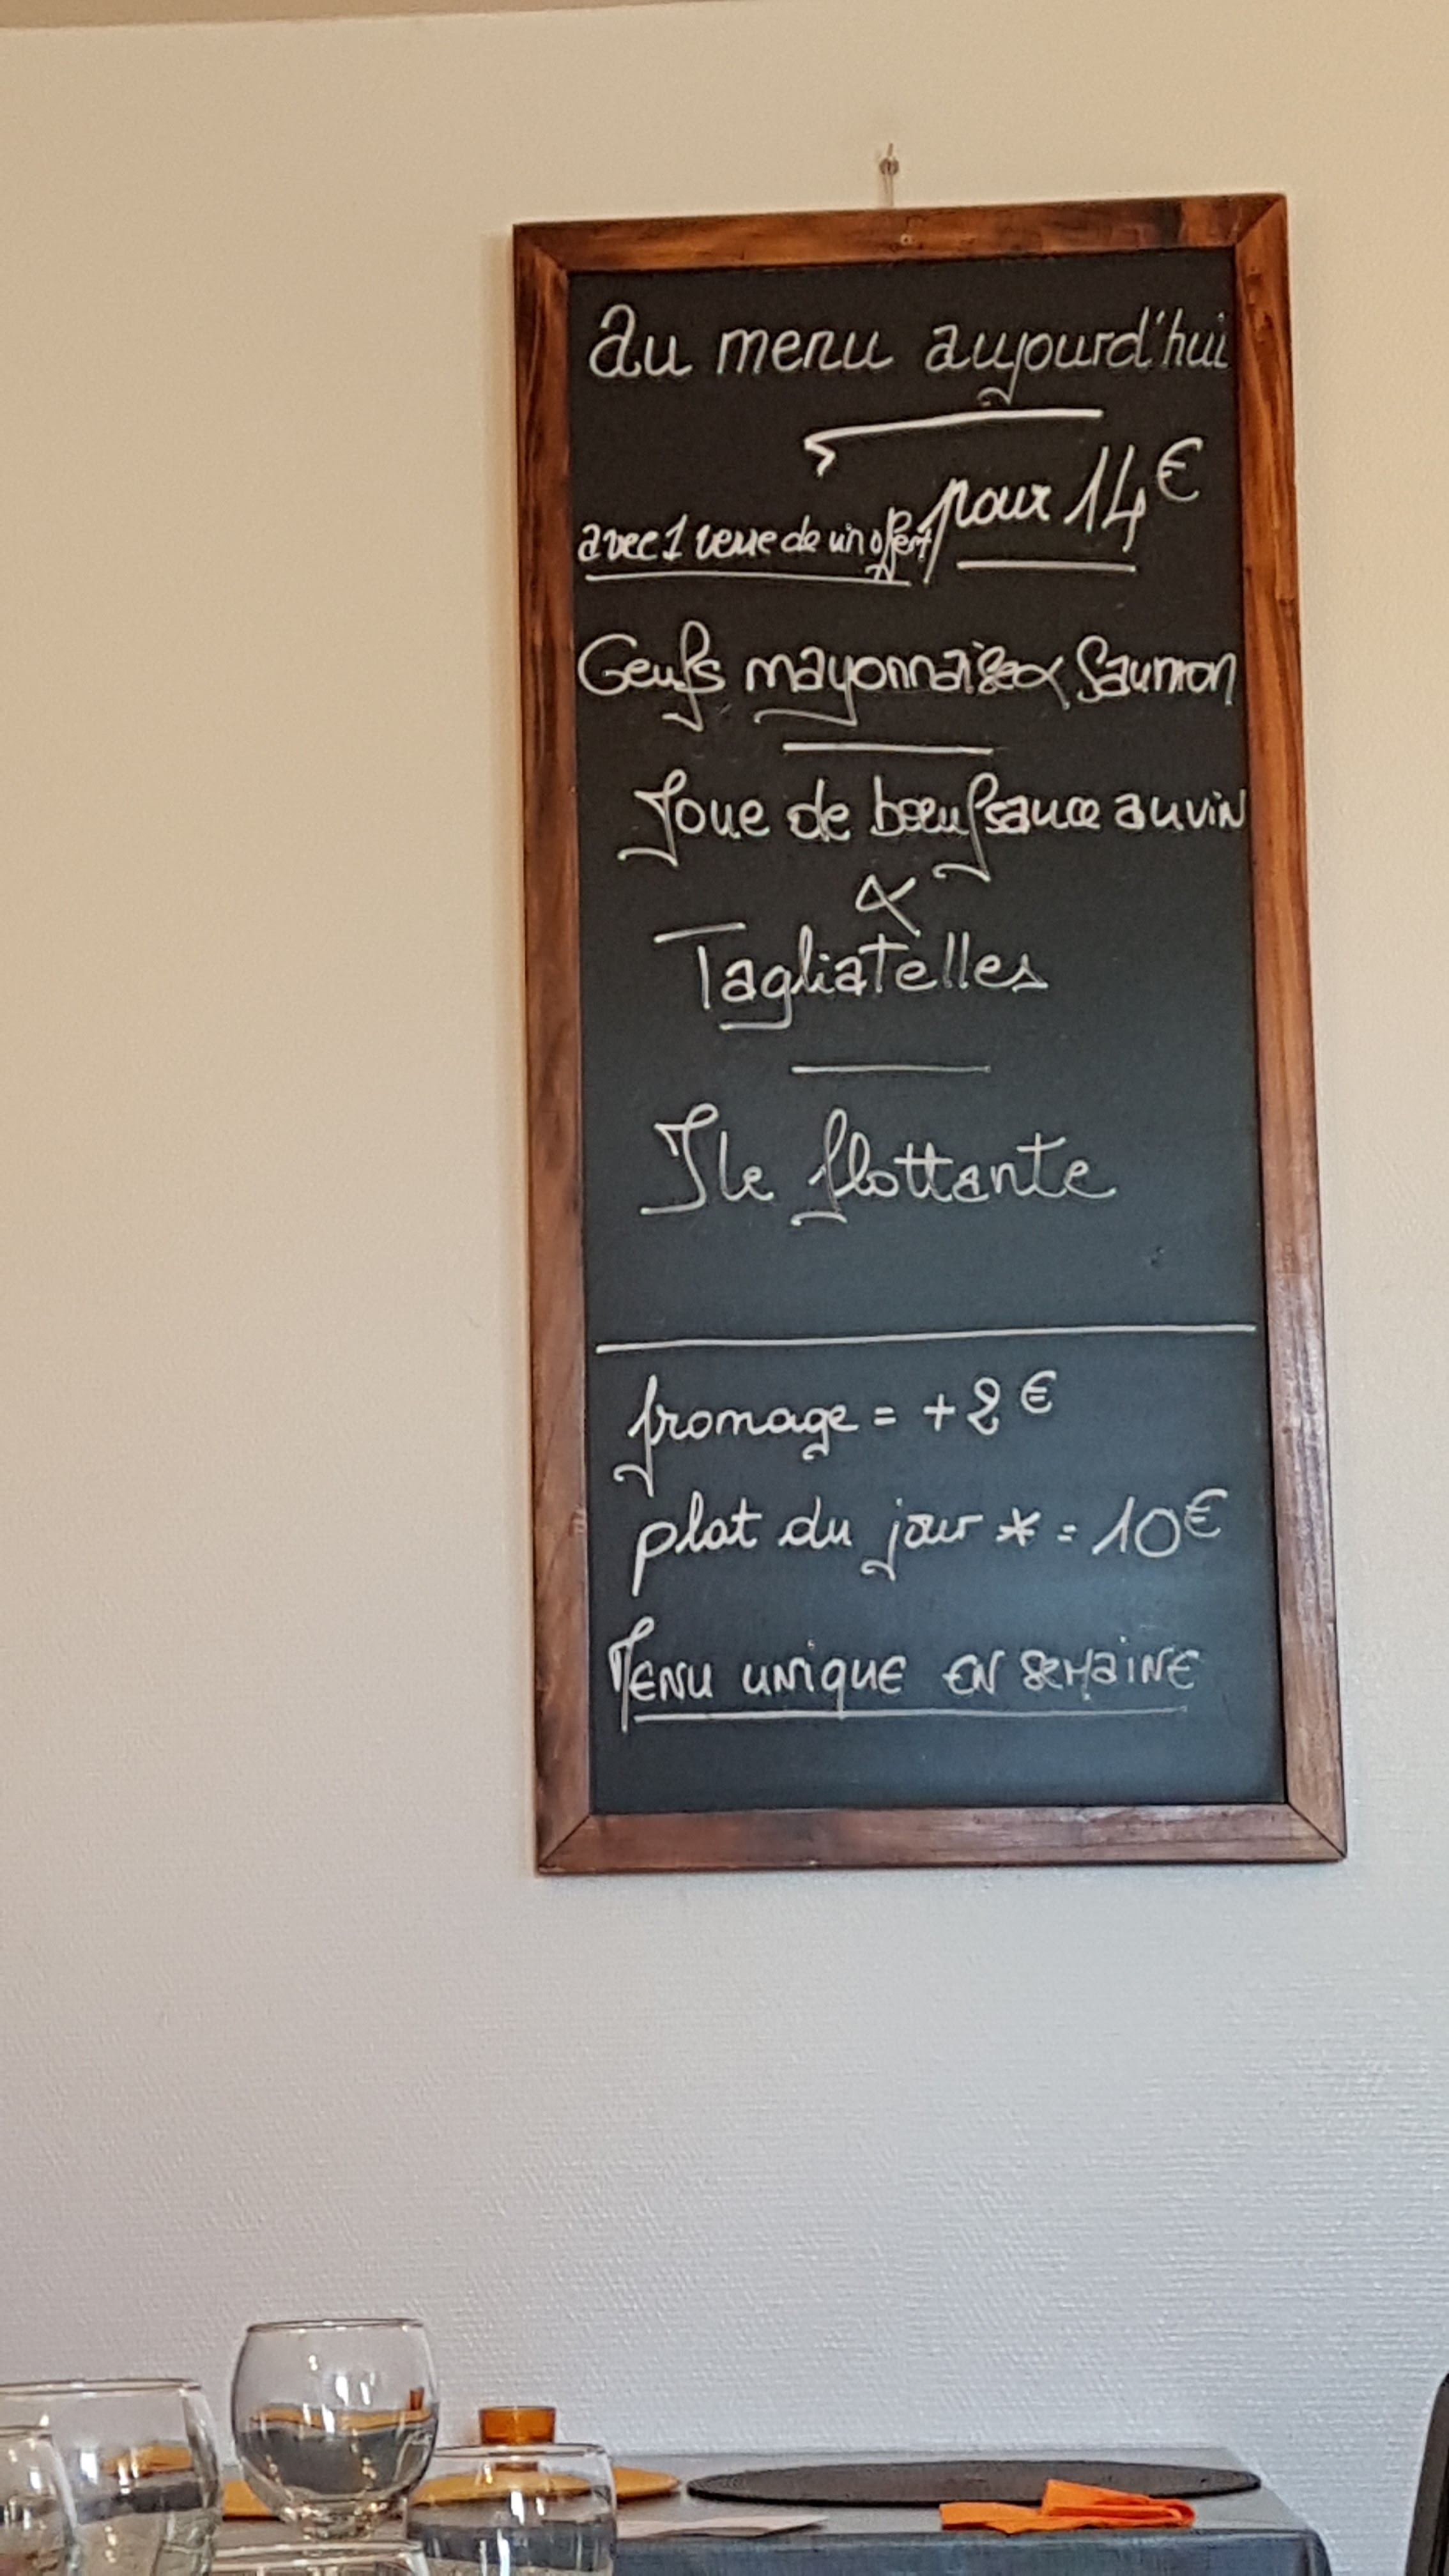 au menu aujourd'hui
pour 14€
avec 1 verre de vin offert
Oeufs mayonnaise & Saumon
Joue de boeuf sauce au vin
&
Tagliatelles
Ile flottante
fromage = +2€
plat du jour * = 10€
Menu unique en semaine